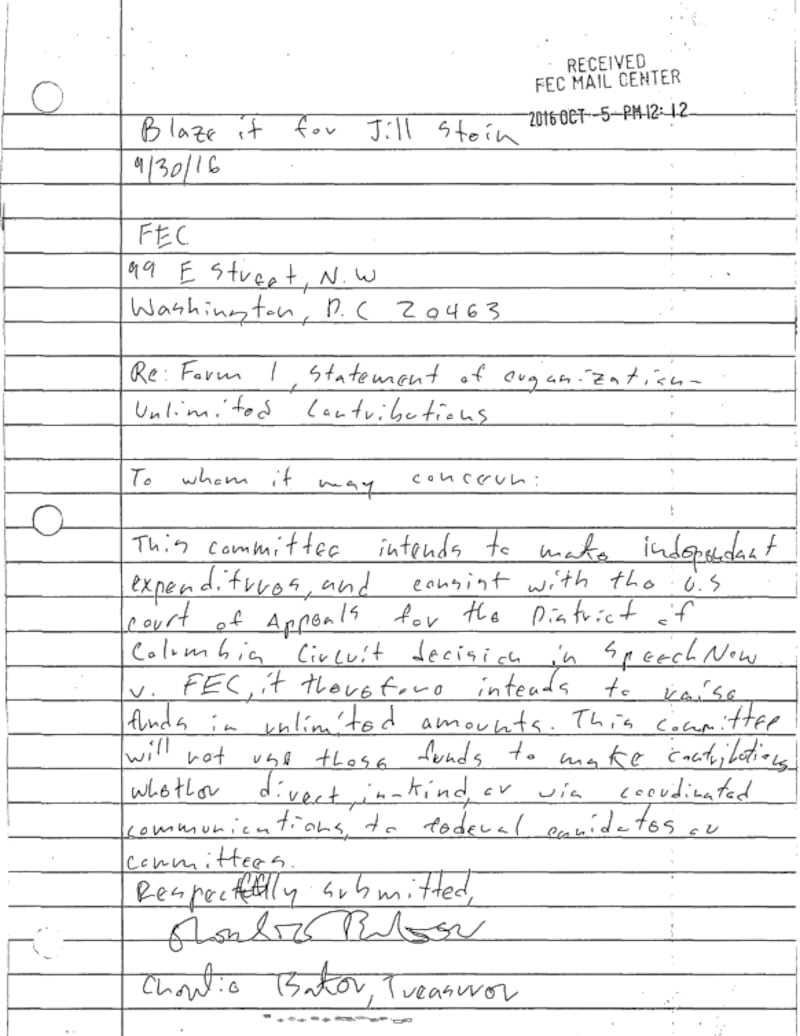 RECEIVED
FEC MAIL CENTER
2016 OCT -5 PM 12: 12
Blaze it for Jill Stein
9/30/16
FEC
99 E Street, N.W
Washington, D.C 20463
Re: Form 1, Statement of organization-
Unlimited Contributions
To whom it may concern:
This committee intends to make independant
expenditruos, and consist with the U.S
court of Appeals for the District of
Columbia Circuit decision in SpeechNow
v. FEC, it therefore intends to raise
funds in unlimited amounts. This committee
will not use those funds to make contributions
whether direct, in-kind, or via coordinated
communications, to federal canidates or
committees.
Respectfully submitted,
Charlie Bator, Treasuror